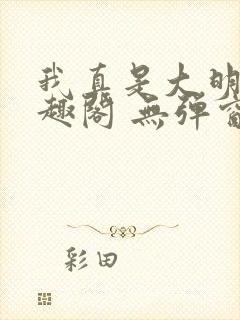 我真是大明
趣阁 無弹窗
彩田